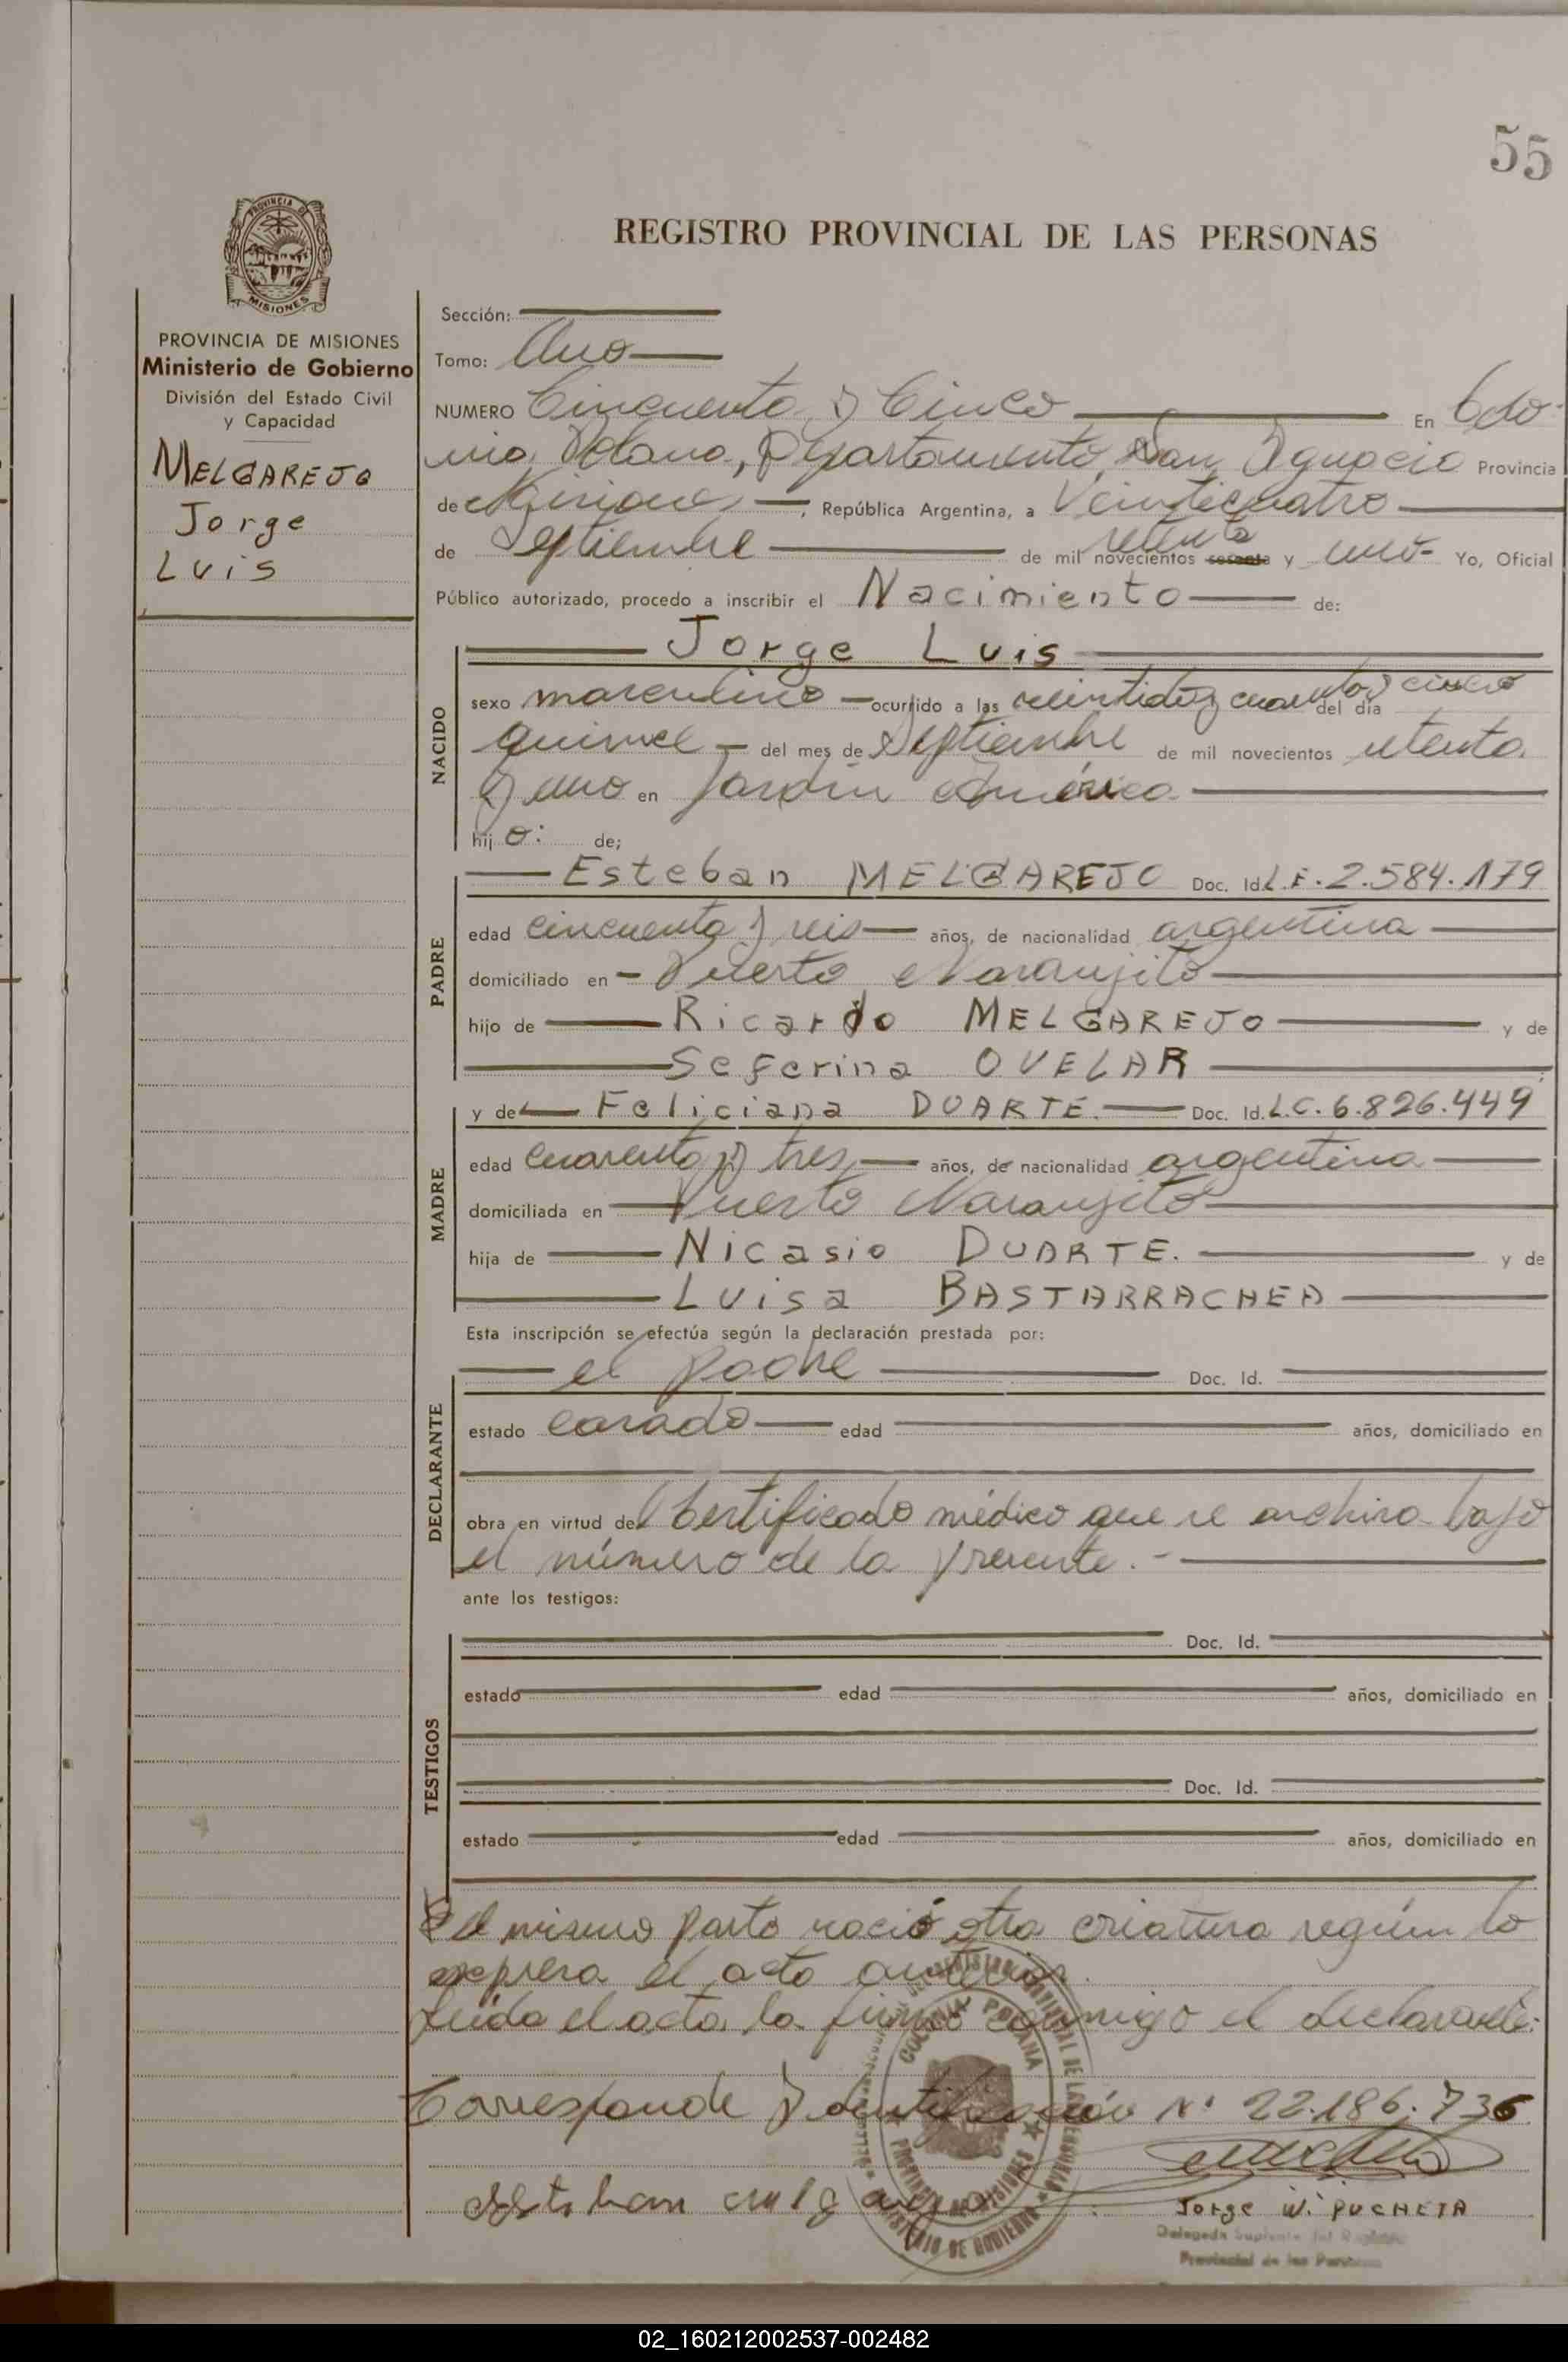 55
PROVINCIA DE
MISIONES
REGISTRO PROVINCIAL DE LAS PERSONAS
PROVINCIA DE MISIONES
Ministerio de Gobierno
División del Estado Civil
y Capacidad
MELGAREJO
Jorge
Luis
Sección:
Tomo: Uno
NUMERO Cincuenta y Cinco En Colo
nia Polana, Departamento San Ignacio Provincia
de Misiones, República Argentina, a Veinticuatro
de Septiembre de mil novecientos setenta y uno- Yo, Oficial
Público autorizado, procedo a inscribir el Nacimiento de:
NACIDO
Jorge Luis
sexo masculino ocurrido a las veintidos y cuarenta y cinco del día
quince del mes de Septiembre de mil novecientos setenta
y uno en Jardín América
hijo: de;
PADRE
Esteban MELGAREJO Doc. Id. L.E. 2.584.179
edad cincuenta y seis años, de nacionalidad argentina
domiciliado en Puerto Naranjito
hijo de Ricardo MELGAREJO y de
Seferina OVELAR
MADRE
y de Feliciana DUARTE. Doc. Id. L.C. 6.826.449
edad cuarenta y tres años, de nacionalidad argentina
domiciliada en Puerto Naranjito
hija de Nicasio DUARTE. y de
Luisa BASTARRACHEA
Esta inscripción se efectúa según la declaración prestada por:
DECLARANTE
el padre Doc. Id.
estado casado edad años, domiciliado en
obra en virtud del Certificado médico que se archiva bajo
el número de la presente.-
ante los testigos:
TESTIGOS
Doc. Id.
estado edad años, domiciliado en
Doc. Id.
estado edad años, domiciliado en
el mismo parto nació otra criatura según lo
expresa el acta anterior.
Leída el acta, la firmó conmigo el declarante:
Corresponde Identificación Nº 22.186.736
COLONIA POLANA
PROVINCIA DE MISIONES
MINISTERIO DE GOBIERNO
Esteban
Jorge W. PUCHETA
Delegado Suplente del Registro
Provincial de las Personas
02_160212002537-002482